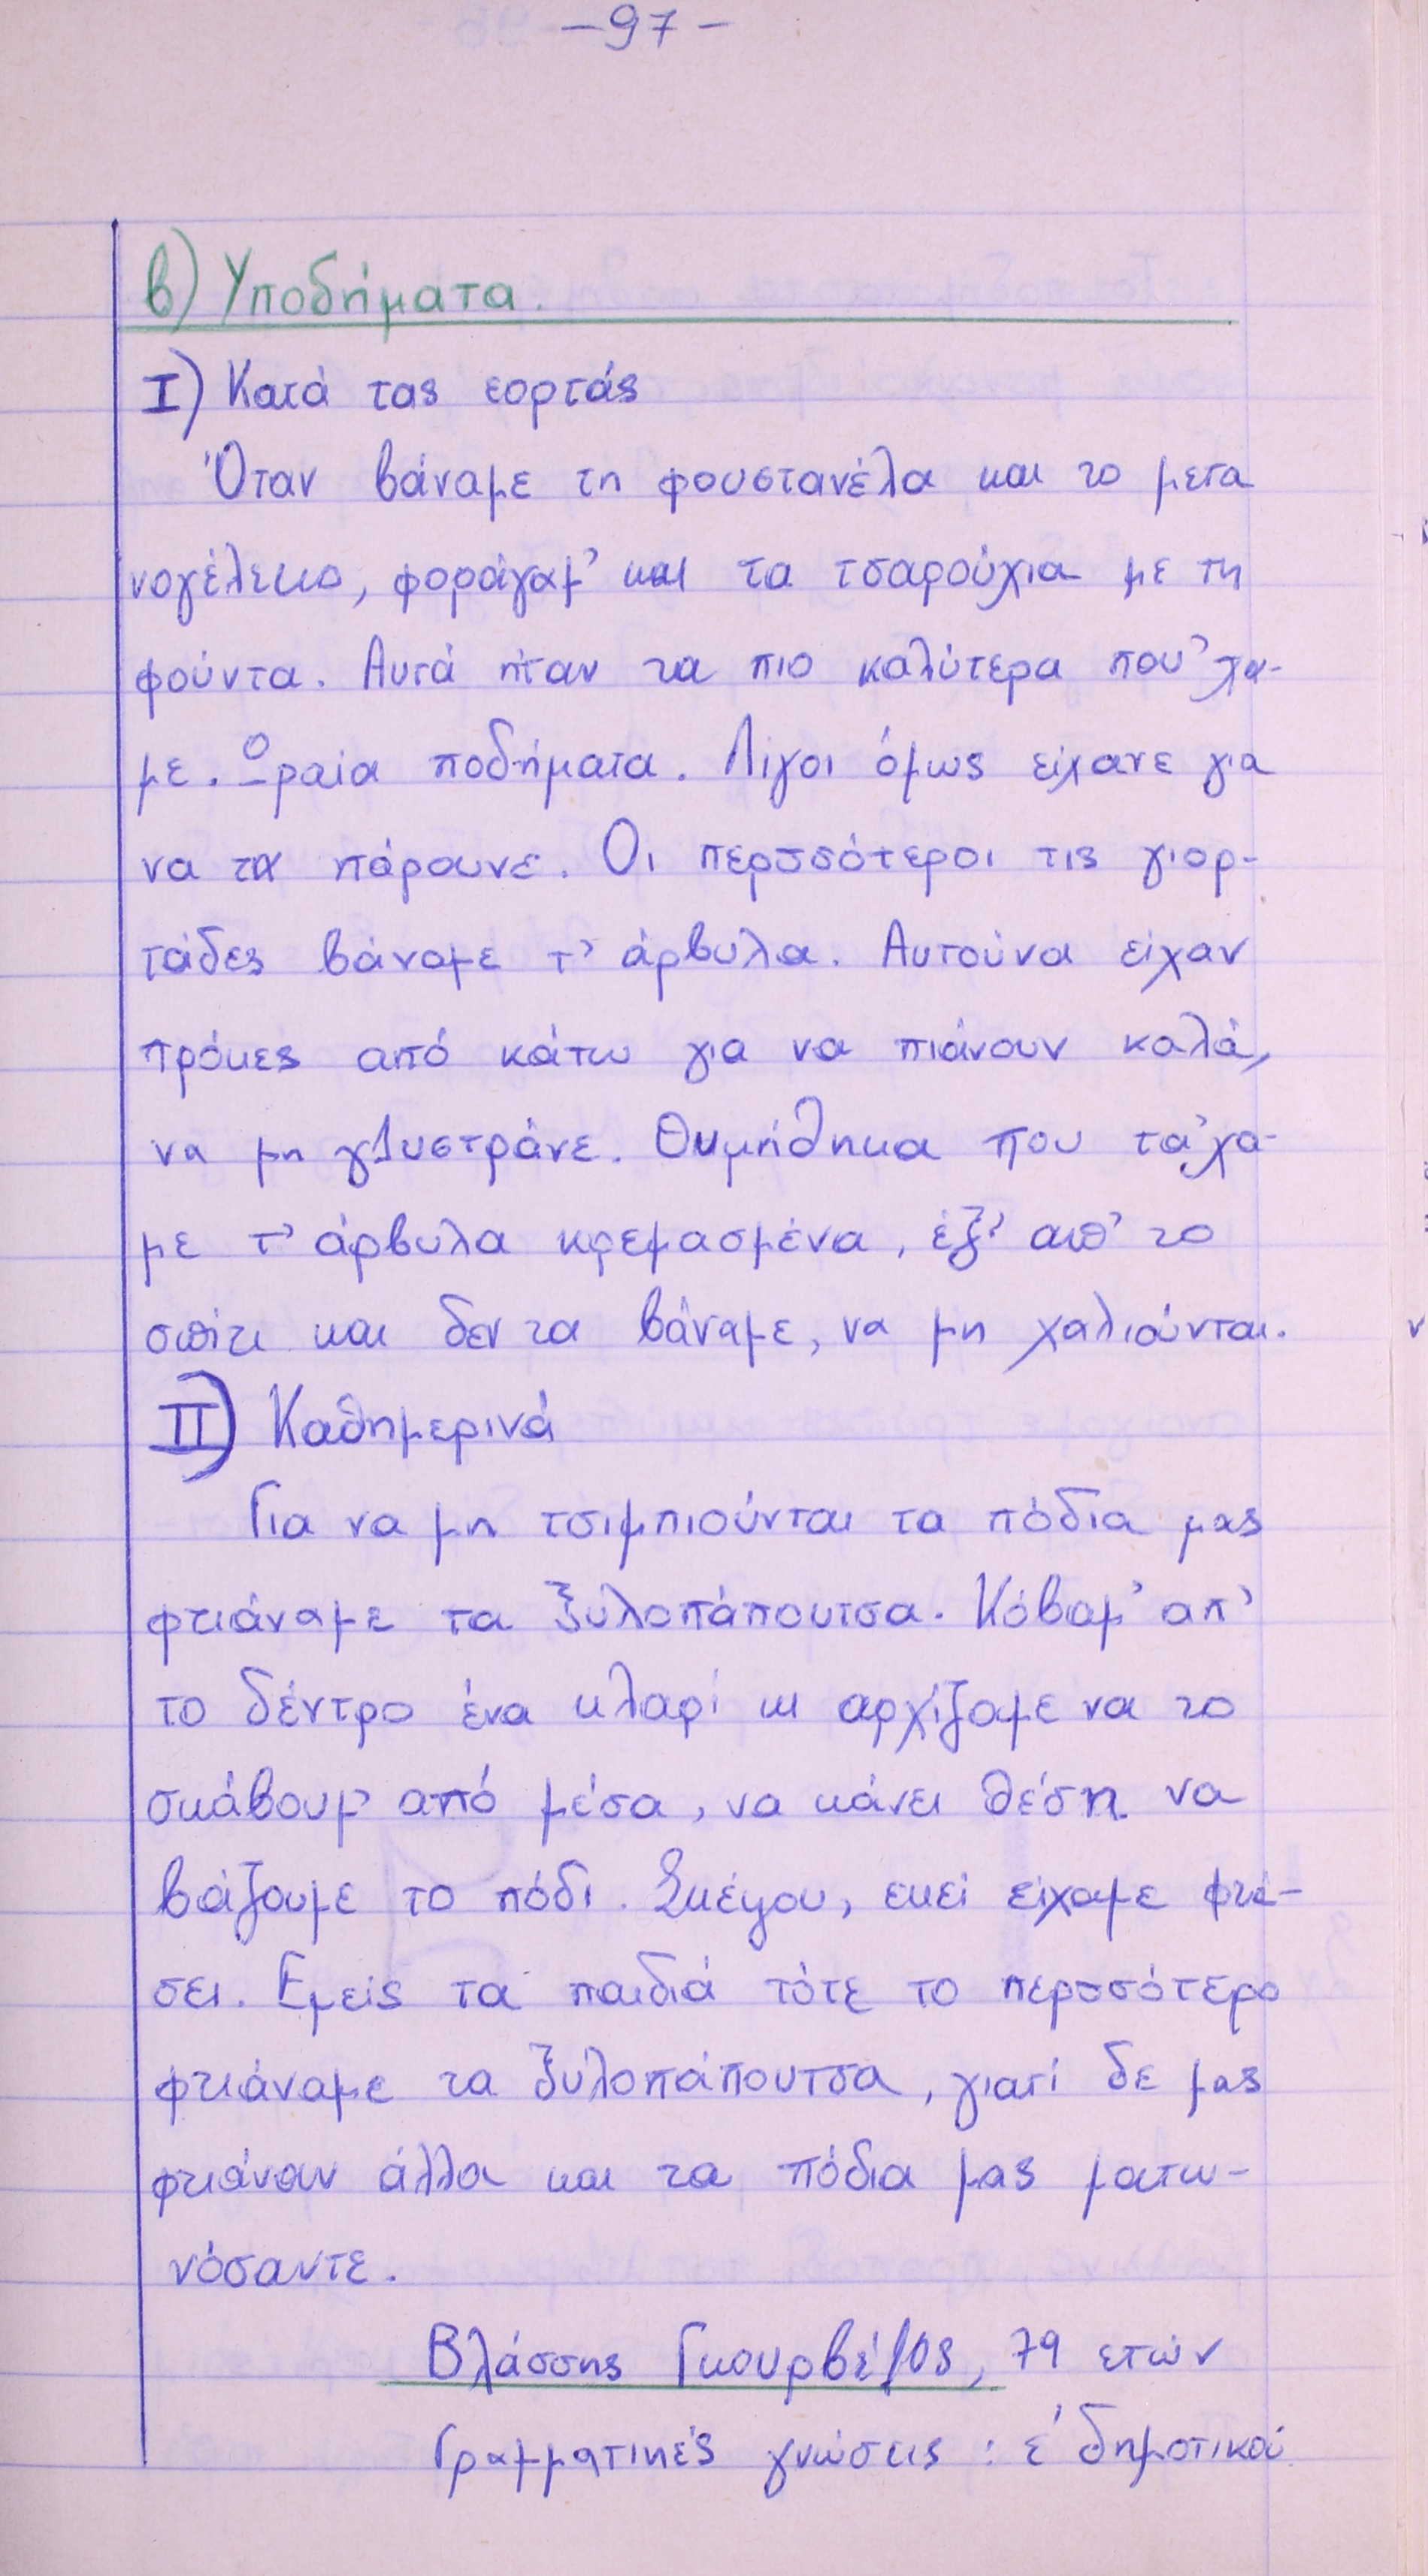 -97-
β) Υποδήματα.
I) Κατά τας εορτάς
Όταν βάναμε τη φουστανέλα και το μετα
νογέλεκο, φοράγαμ' και τα τσαρούχια με τη
φούντα. Αυτά ήταν τα πιο καλύτερα που 'χα-
με. Ωραία ποδήματα. Λίγοι όμως είχανε για
να τα πάρουνε. Οι περσσότεροι τις γιορ-
τάδες βάναμε τ' άρβυλα. Αυτούνα είχαν
πρόκες από κάτω για να πιάνουν καλά,
να μη γλυστράνε. Θυμήθηκα που τα 'χα-
με τ' άρβυλα κρεμασμένα, έξ' απ' το
σπίτι και δεν τα βάναμε, να μη χαλιούνται.
II) Καθημερινά
Για να μη τσιμπιούνται τα πόδια μας
φτιάναμε τα ξυλοπάπουτσα. Κόβαμ' απ'
το δέντρο ένα κλαρί κι αρχίζαμε να το
σκάβουμ' από μέσα, να κάνει θέση να
βάζουμε το πόδι. Σκέψου, εκεί είχαμε φτά-
σει. Εμείς τα παιδιά τότε το περσσότερο
φτιάναμε τα ξυλοπάπουτσα, γιατί δε μας
φτιάναν άλλα και τα πόδια μας ματω-
νόσαντε.
Βλάσσης Γκουρβέλος, 79 ετών
Γραμματικές γνώσεις : ε' δημοτικού